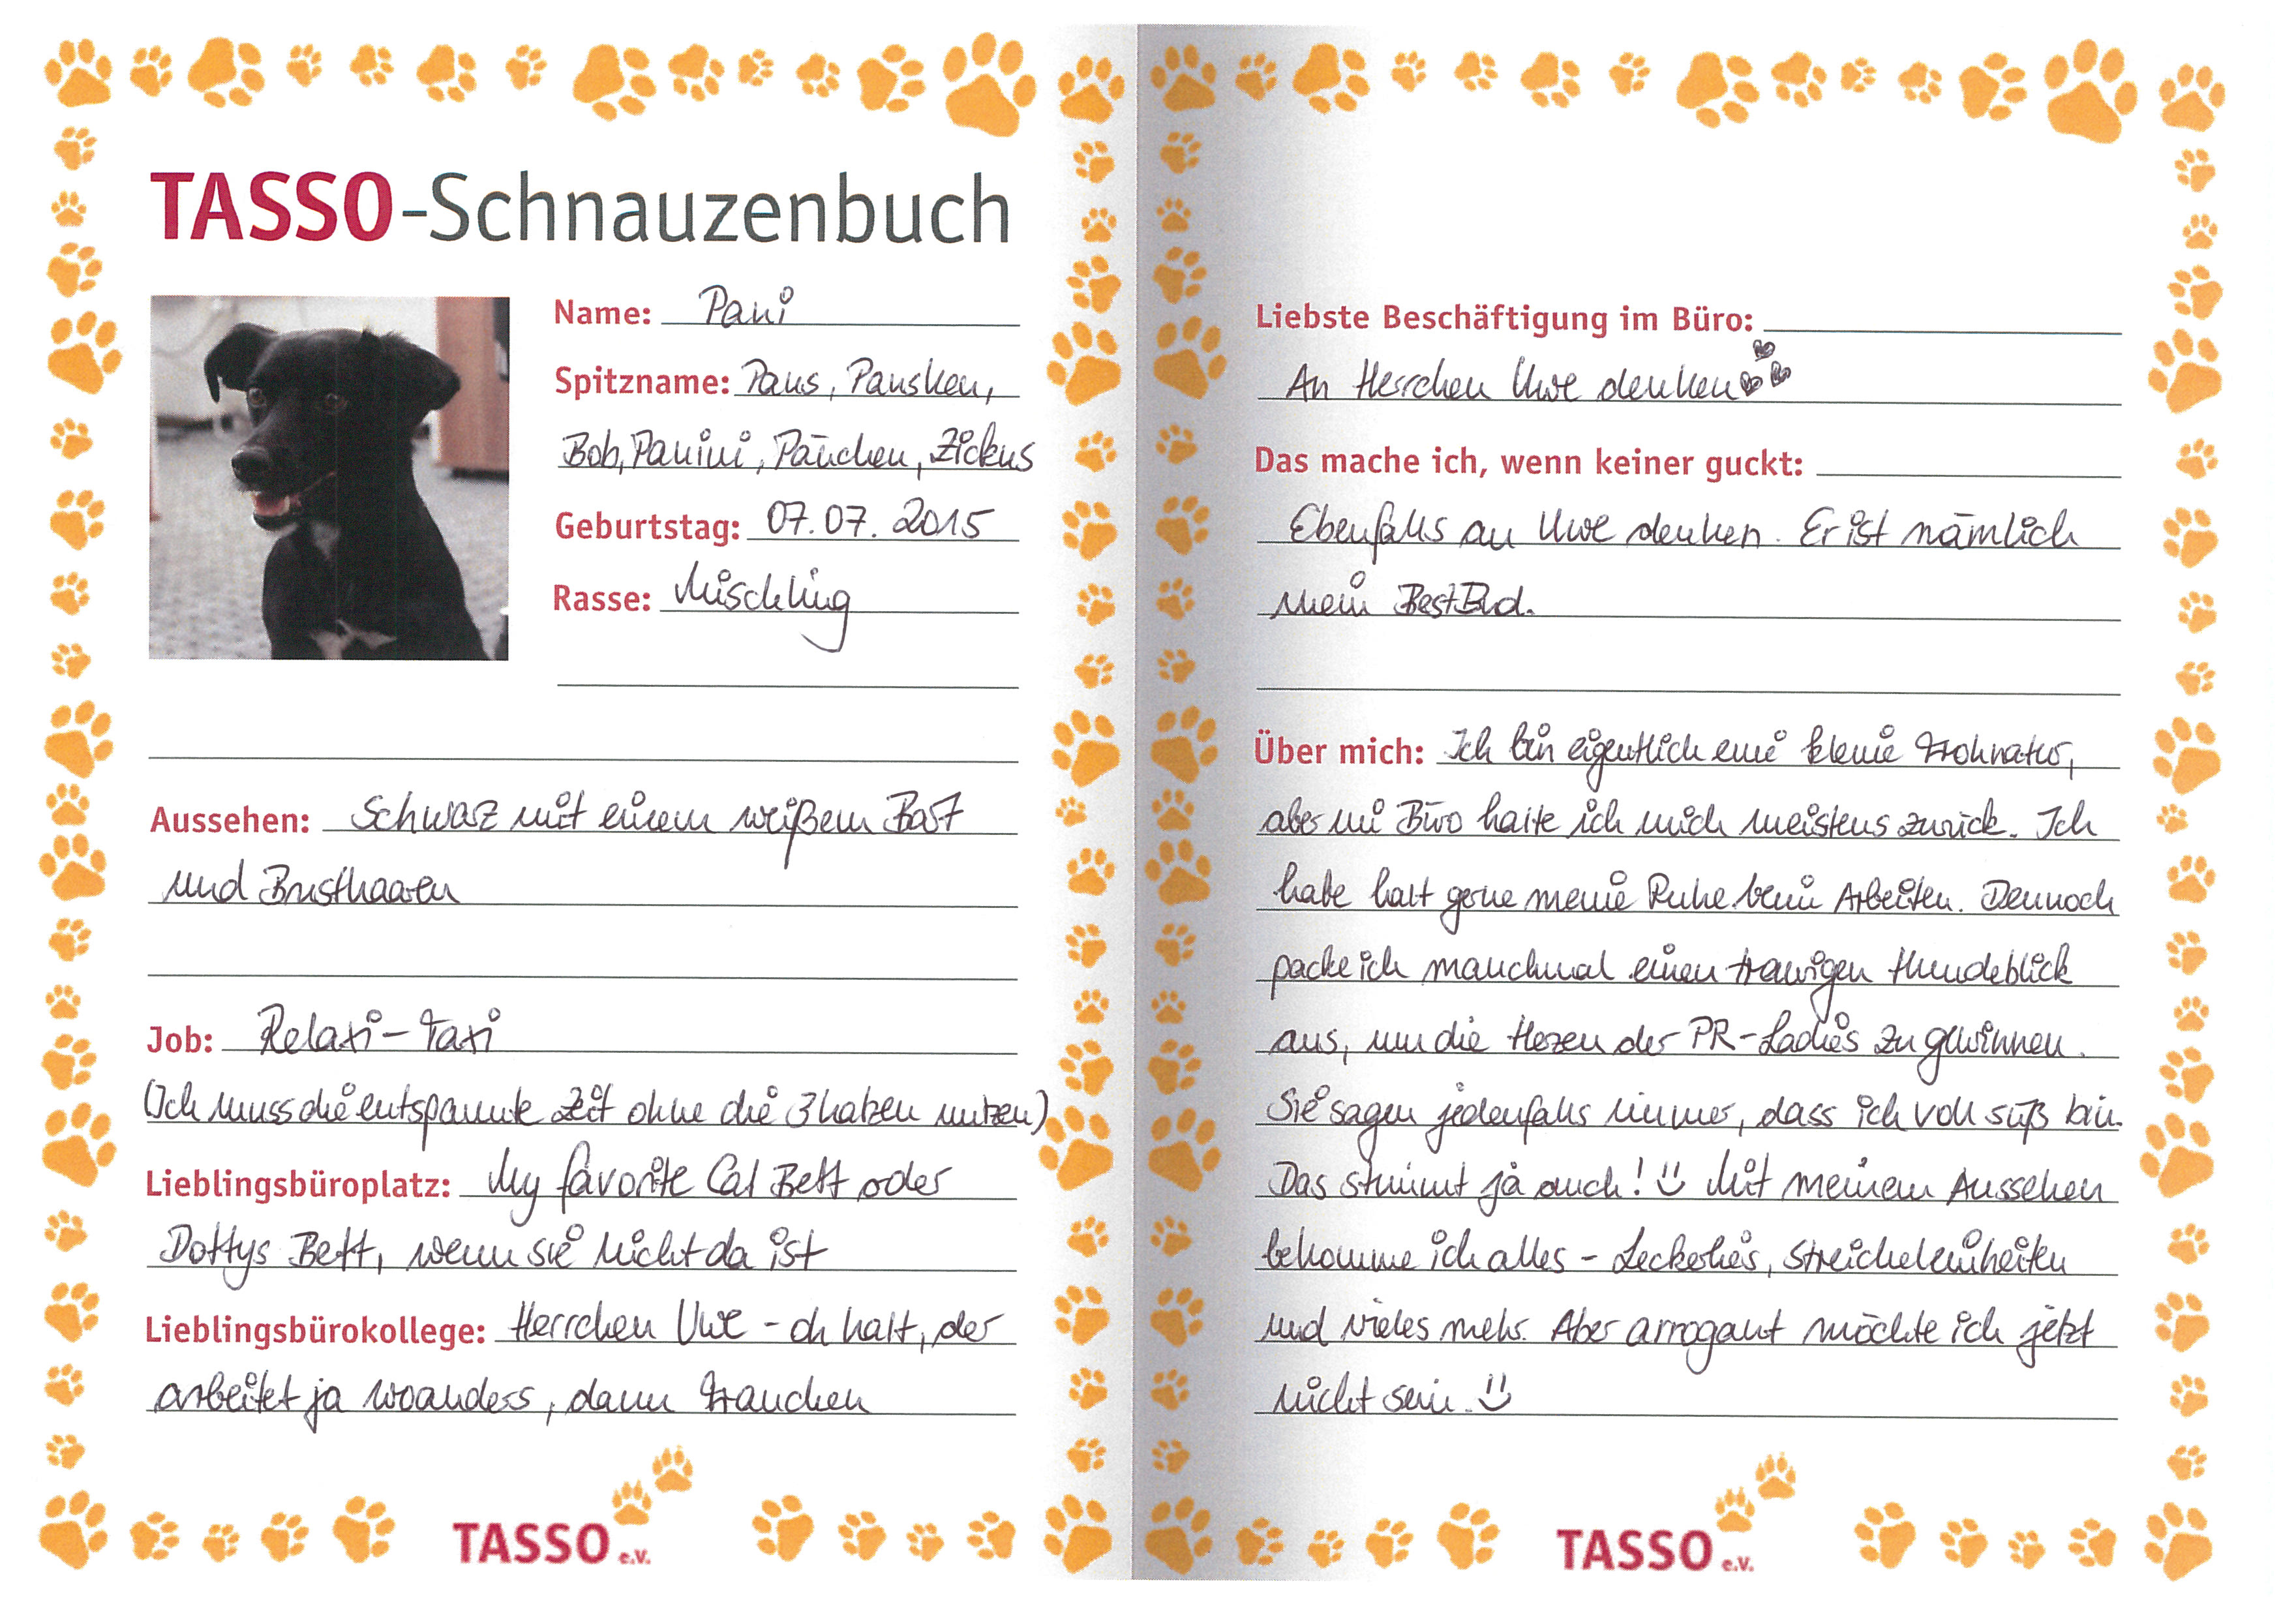 TASSO-Schnauzenbuch
Name: Pani
Spitzname: Paus, Pausken,
Bob, Panini, Päuchen, Zickus
Geburtstag: 07.07.2015
Rasse: Mischling
Aussehen: Schwarz mit einem weißem Bart
und Brusthaaren
Job: Relaxi-Taxi
(Ich muss die entspannte Zeit ohne die 3 Katzen nutzen)
Lieblingsbüroplatz: My favorite Cat Bett oder
Dottys Bett, wenn sie nicht da ist
Lieblingsbürokollege: Herrchen Uwe - oh halt, der
arbeitet ja woanders, dann Frauchen
TASSO e.V.
Liebste Beschäftigung im Büro:
An Herrchen Uwe denken
Das mache ich, wenn keiner guckt:
Ebenfalls an Uwe denken. Er ist nämlich
mein BestBud.
Über mich: Ich bin eigentlich eine kleine Frohnatur,
aber im Büro halte ich mich meistens zurück. Ich
habe halt gerne meine Ruhe beim Arbeiten. Dennoch
packe ich manchmal einen traurigen Hundeblick
aus, um die Herzen der PR-Ladies zu gewinnen.
Sie sagen jedenfalls immer, dass ich voll süß bin.
Das stimmt ja auch! Mit meinem Aussehen
bekomme ich alles - Leckerlies, Streicheleinheiten
und vieles mehr. Aber arrogant möchte ich jetzt
nicht sein.
TASSO e.V.